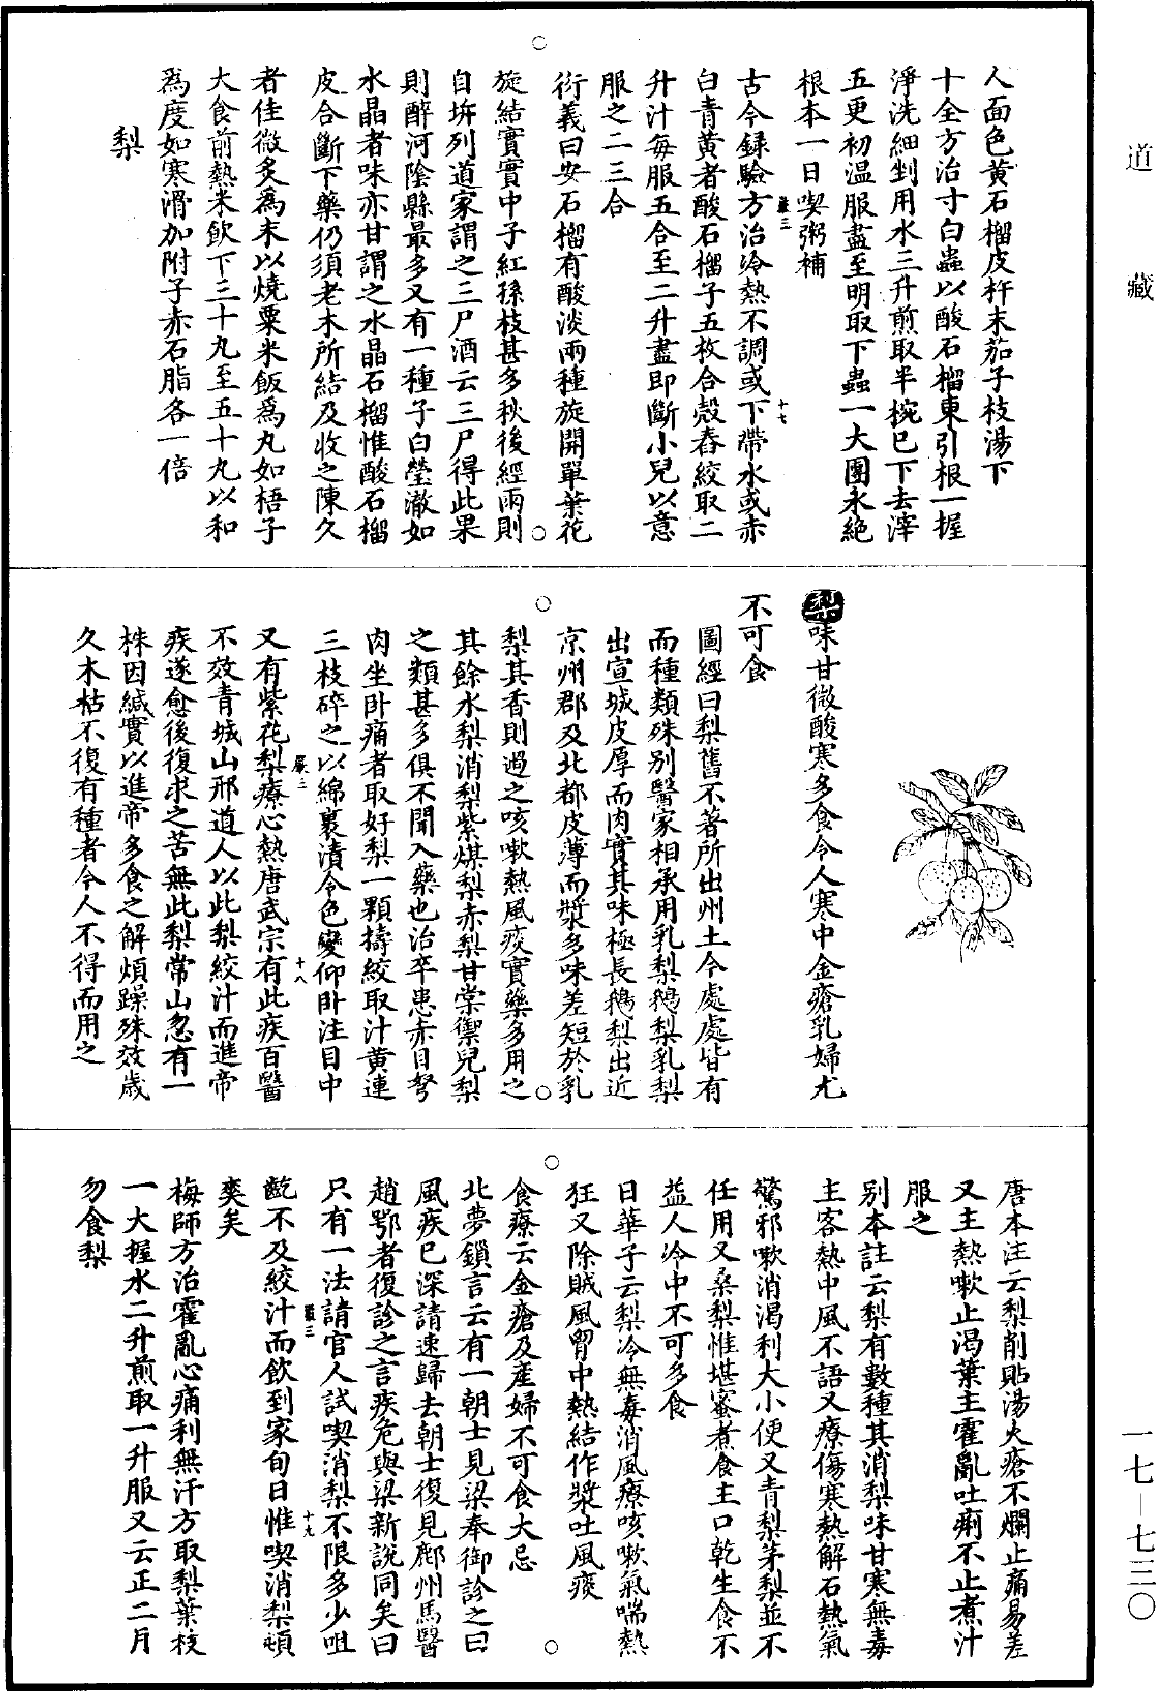 道藏
人面色黄石榴皮杵末茄子枝湯下
十全方治寸白蟲以酸石榴東引根一握
淨洗細剉用水三升煎取半椀已下去滓
五更初温服盡至明取下蟲一大團永絶
根本一日喫粥補
古今録驗方治冷熱不調或下帶水或赤
白青黄者酸石榴子五枚合殼舂絞取二
升汁每服五合至二升盡即斷小兒以意
服之二三合
衍義曰安石榴有酸淡兩種旋開單葉花
旋結實實中子紅孫枝甚多秋後經雨則
自坼列道家謂之三尸酒云三尸得此果
則醉河陰縣最多又有一種子白瑩澈如
水晶者味亦甘謂之水晶石榴惟酸石榴
皮合斷下藥仍須老木所結及收之陳久
者佳微炙為末以燒粟米飯為丸如梧子
大食前熱米飲下三十丸至五十丸以和
為度如寒滑加附子赤石脂各一倍
梨
梨味甘微酸寒多食令人寒中金瘡乳婦尤
不可食
圖經曰梨舊不著所出州土今處處皆有
而種類殊别醫家相承用乳梨鵝梨乳梨
出宣城皮厚而肉實其味極長鵝梨出近
京州郡及北都皮薄而漿多味差短於乳
梨其香則過之咳嗽熱風痰實藥多用之
其餘水梨消梨紫煤梨赤梨甘棠禦兒梨
之類甚多俱不聞入藥也治卒患赤目弩
肉坐卧痛者取好梨一顆擣絞取汁黄連
三枝碎之以綿裹漬令色變仰卧注目中
又有紫花梨療心熱唐武宗有此疾百醫
不效青城山邢道人以此梨絞汁而進帝
疾遂愈後復求之苦無此梨常山忽有一
株因緘實以進帝多食之解煩躁殊效歲
久木枯不復有種者今人不得而用之
唐本注云梨削貼湯火瘡不爛止痛易差
又主熱嗽止渴葉主霍亂吐痢不止煮汁
服之
别本註云梨有數種其消梨味甘寒無毒
主客熱中風不語又療傷寒熱解石熱氣
驚邪嗽消渴利大小便又青梨茅梨並不
任用又桑梨惟堪蜜煮食主口乾生食不
益人冷中不可多食
日華子云梨冷無毒消風療咳嗽氣喘熱
狂又除賊風胷中熱結作漿吐風痰
食療云金瘡及産婦不可食大忌
北夢鎖言云有一朝士見梁奉御診之曰
風疾已深請速歸去朝士復見鄜州馬醫
趙鄂者復診之言疾危與梁新說同矣曰
只有一法請官人試喫消梨不限多少咀
齕不及絞汁而飲到家旬日惟喫消梨頓
爽矣
梅師方治霍亂心痛利無汗方取梨葉枝
一大握水二升煎取一升服又云正二月
勿食梨
一七－七三〇